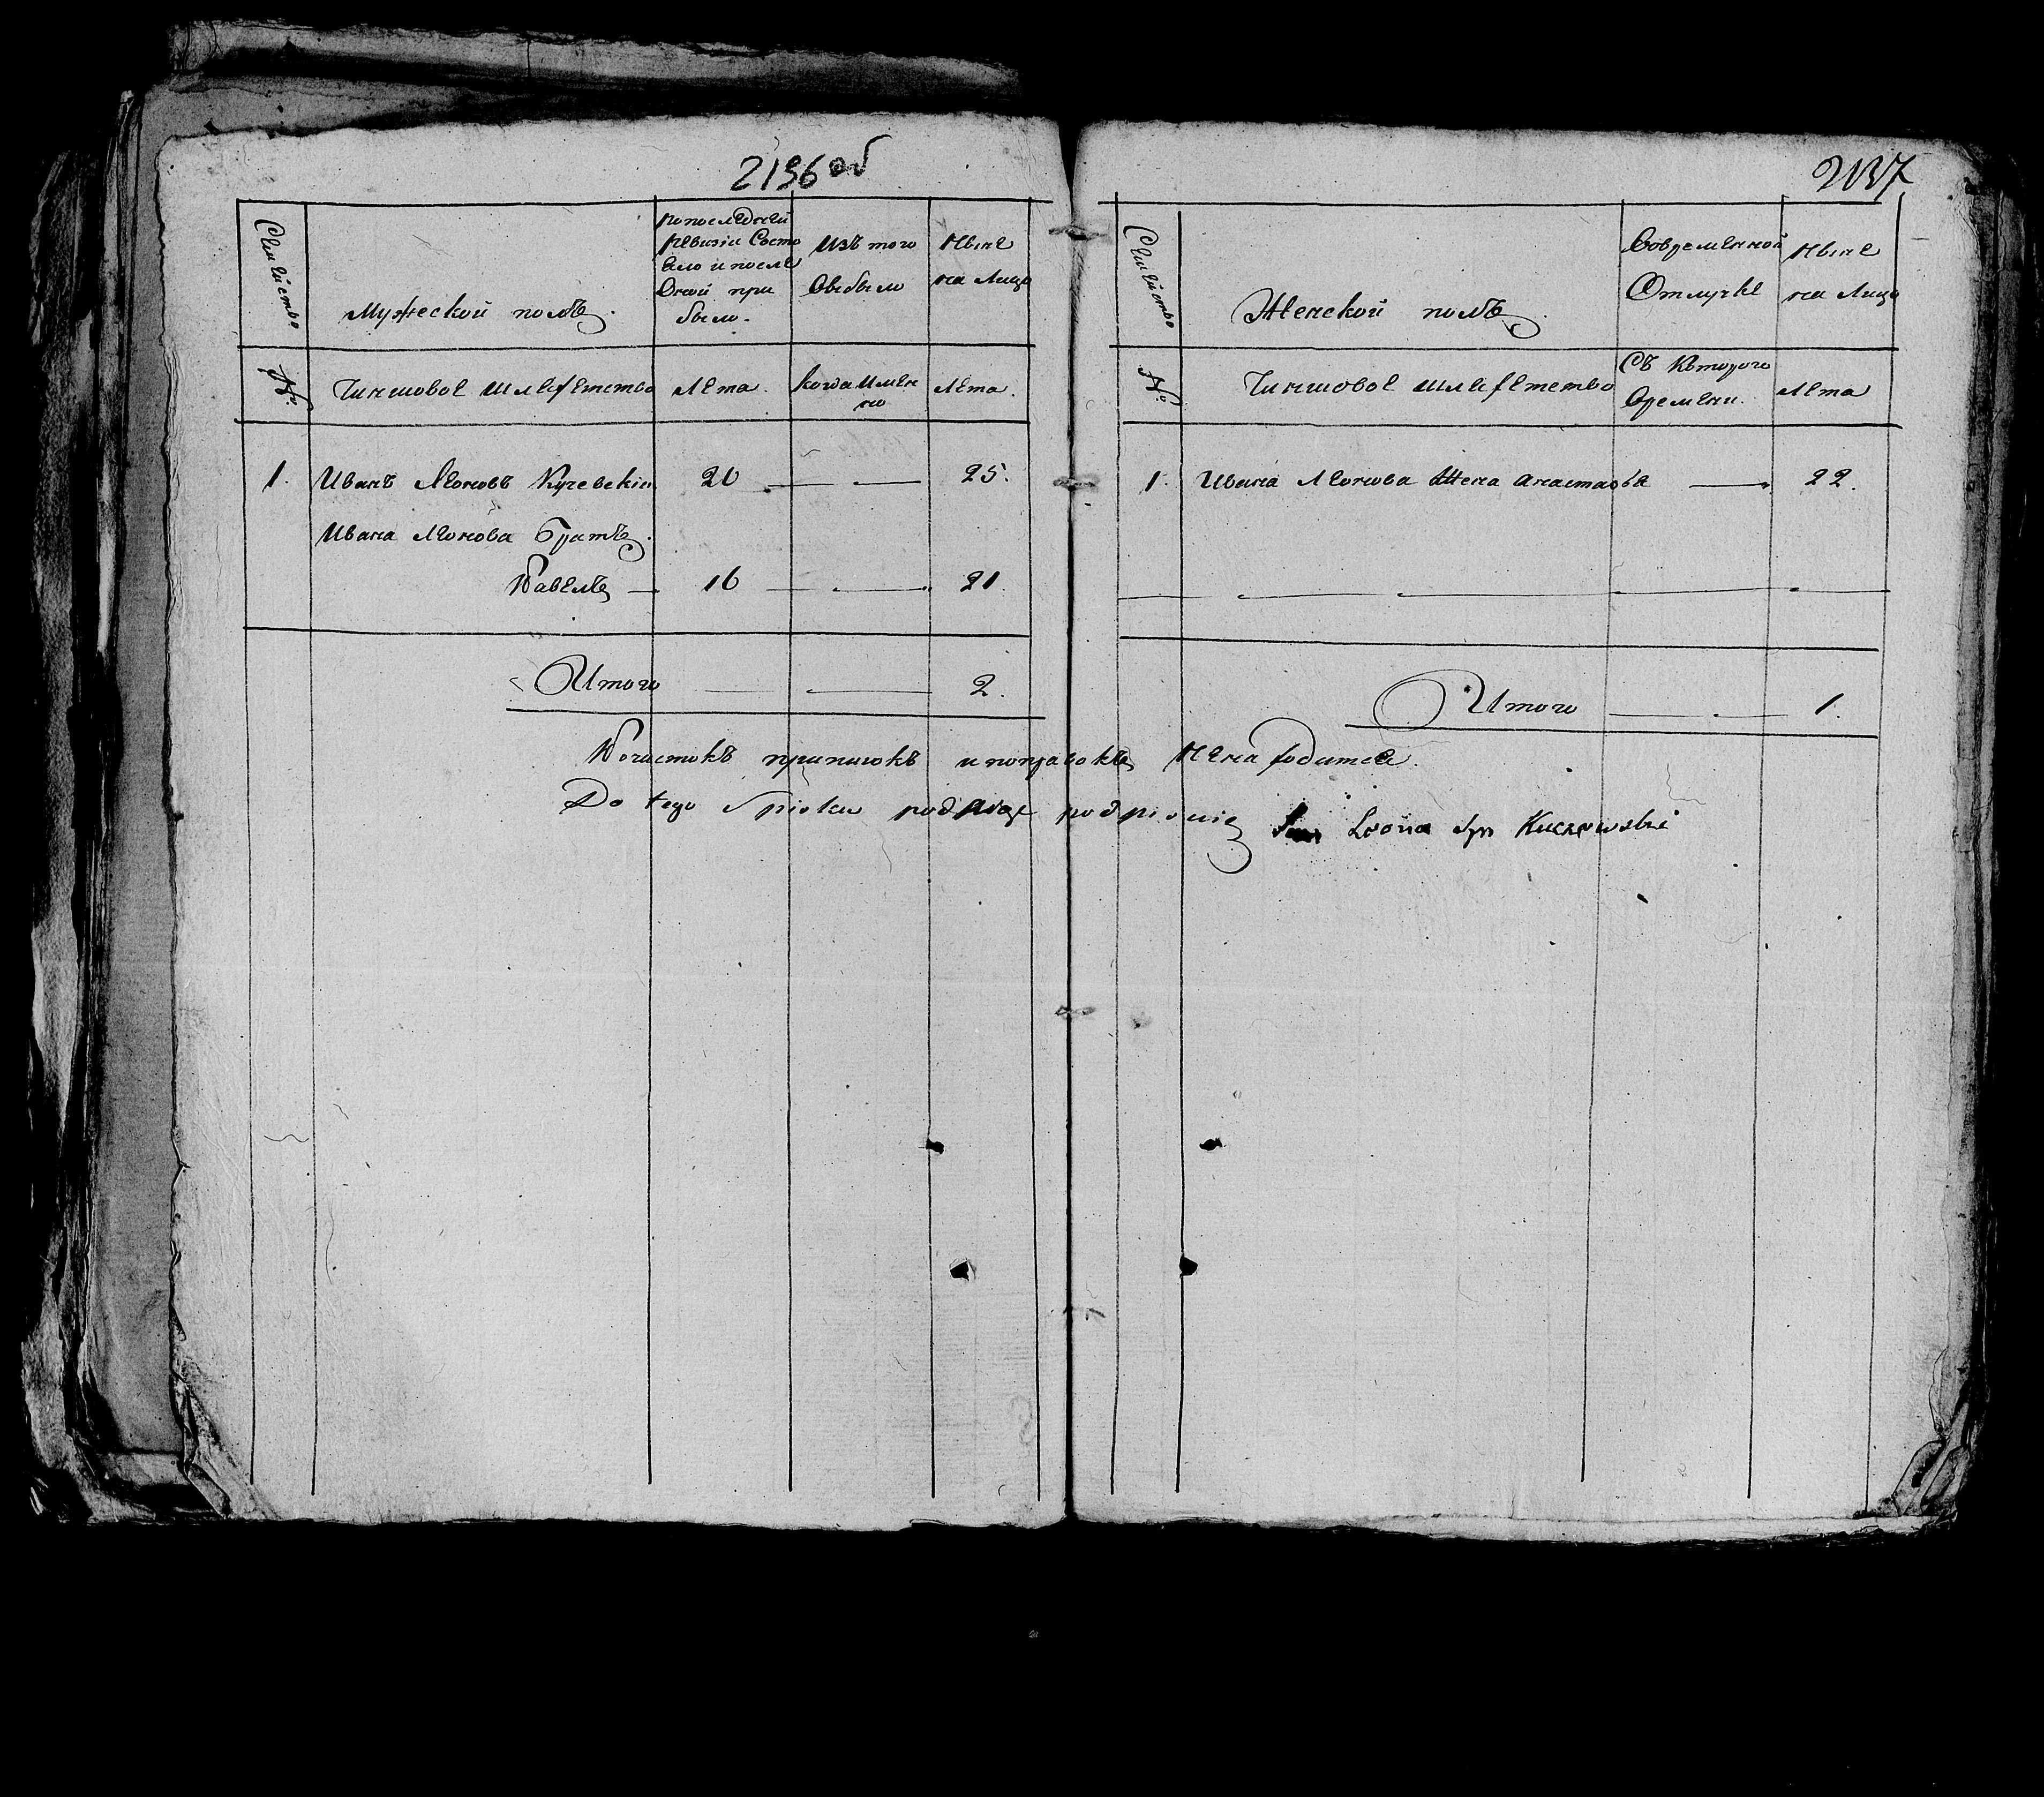 2136 об
Семейство
Мужеской полъ.
По последней
ревизіи Состо
яло и после
Оной при
было.
Изъ того
Выбыло
Ныне
на Лицо
№
Чиншовое шляхетство
Лета.
Когда имен
но
Лета.
1. Иванъ Леоновъ Кучевскій 20 25.
Ивана Леонова Братъ.
Павелъ 16 21.
Итого 2.
2137
Семейство
Женской полъ.
Вовременной
Отлучке
Ныне
на Лицо
№
Чиншовое шляхетство
Съ Которого
Времени.
Лета
1. Ивана Леонова Жена Анастасья 22.
Итого 1.
Почистокъ приписокъ и поправокъ Ненаходится.
Do tego Spisku podpisuie Leona Syn Kuczewski